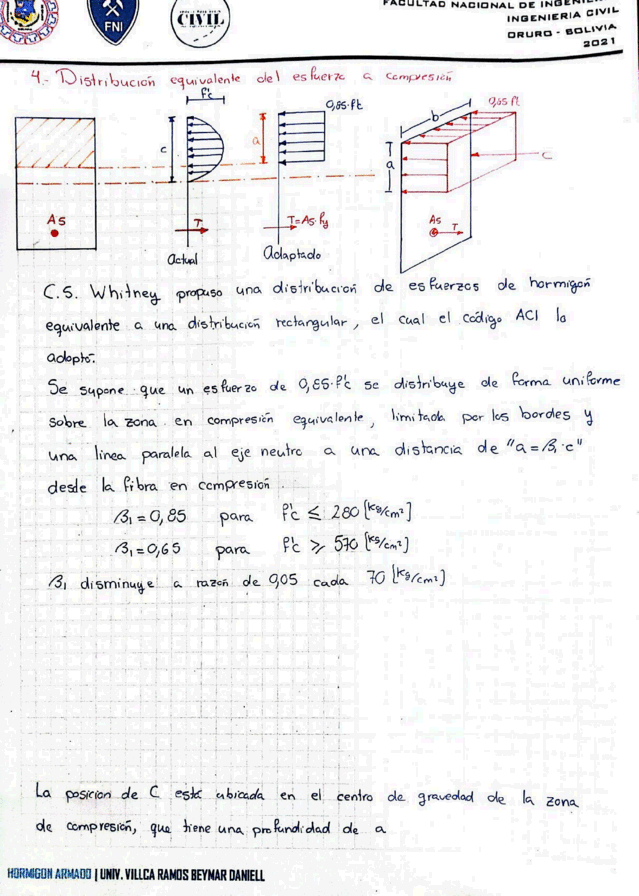 FACULTAD NACIONAL DE INGENIERIA
INGENIERIA CIVIL
ORURO - BOLIVIA
2021
FNI
CIVIL
4.- Distribución equivalente del esfuerzo a compresión
f'c
0,85·f'c
0,85 f'c
c
a
b
a
C
As
T
T=As·fy
As
T
Actual
Adaptado
C.S. Whitney propuso una distribución de esfuerzos de hormigón
equivalente a una distribución rectangular, el cual el código ACI lo
adoptó.
Se supone que un esfuerzo de 0,85·f'c se distribuye de forma uniforme
sobre la zona en compresión equivalente, limitada por los bordes y
una linea paralela al eje neutro a una distancia de "a=β₁·c"
desde la fibra en compresión.
β₁=0,85 para f'c ≤ 280 [kg/cm²]
β₁=0,65 para f'c ≥ 570 [kg/cm²]
β₁ disminuye a razón de 0,05 cada 70 [kg/cm²]
La posición de C está ubicada en el centro de gravedad de la zona
de compresión, que tiene una profundidad de a
HORMIGON ARMADO | UNIV. VILLCA RAMOS BEYNAR DANIELL